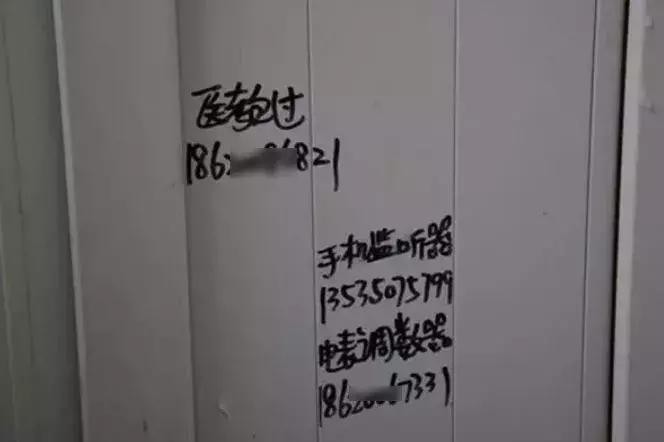 医考包过
186 821
手机监听器
13535075799
电表调数器
1862 7331